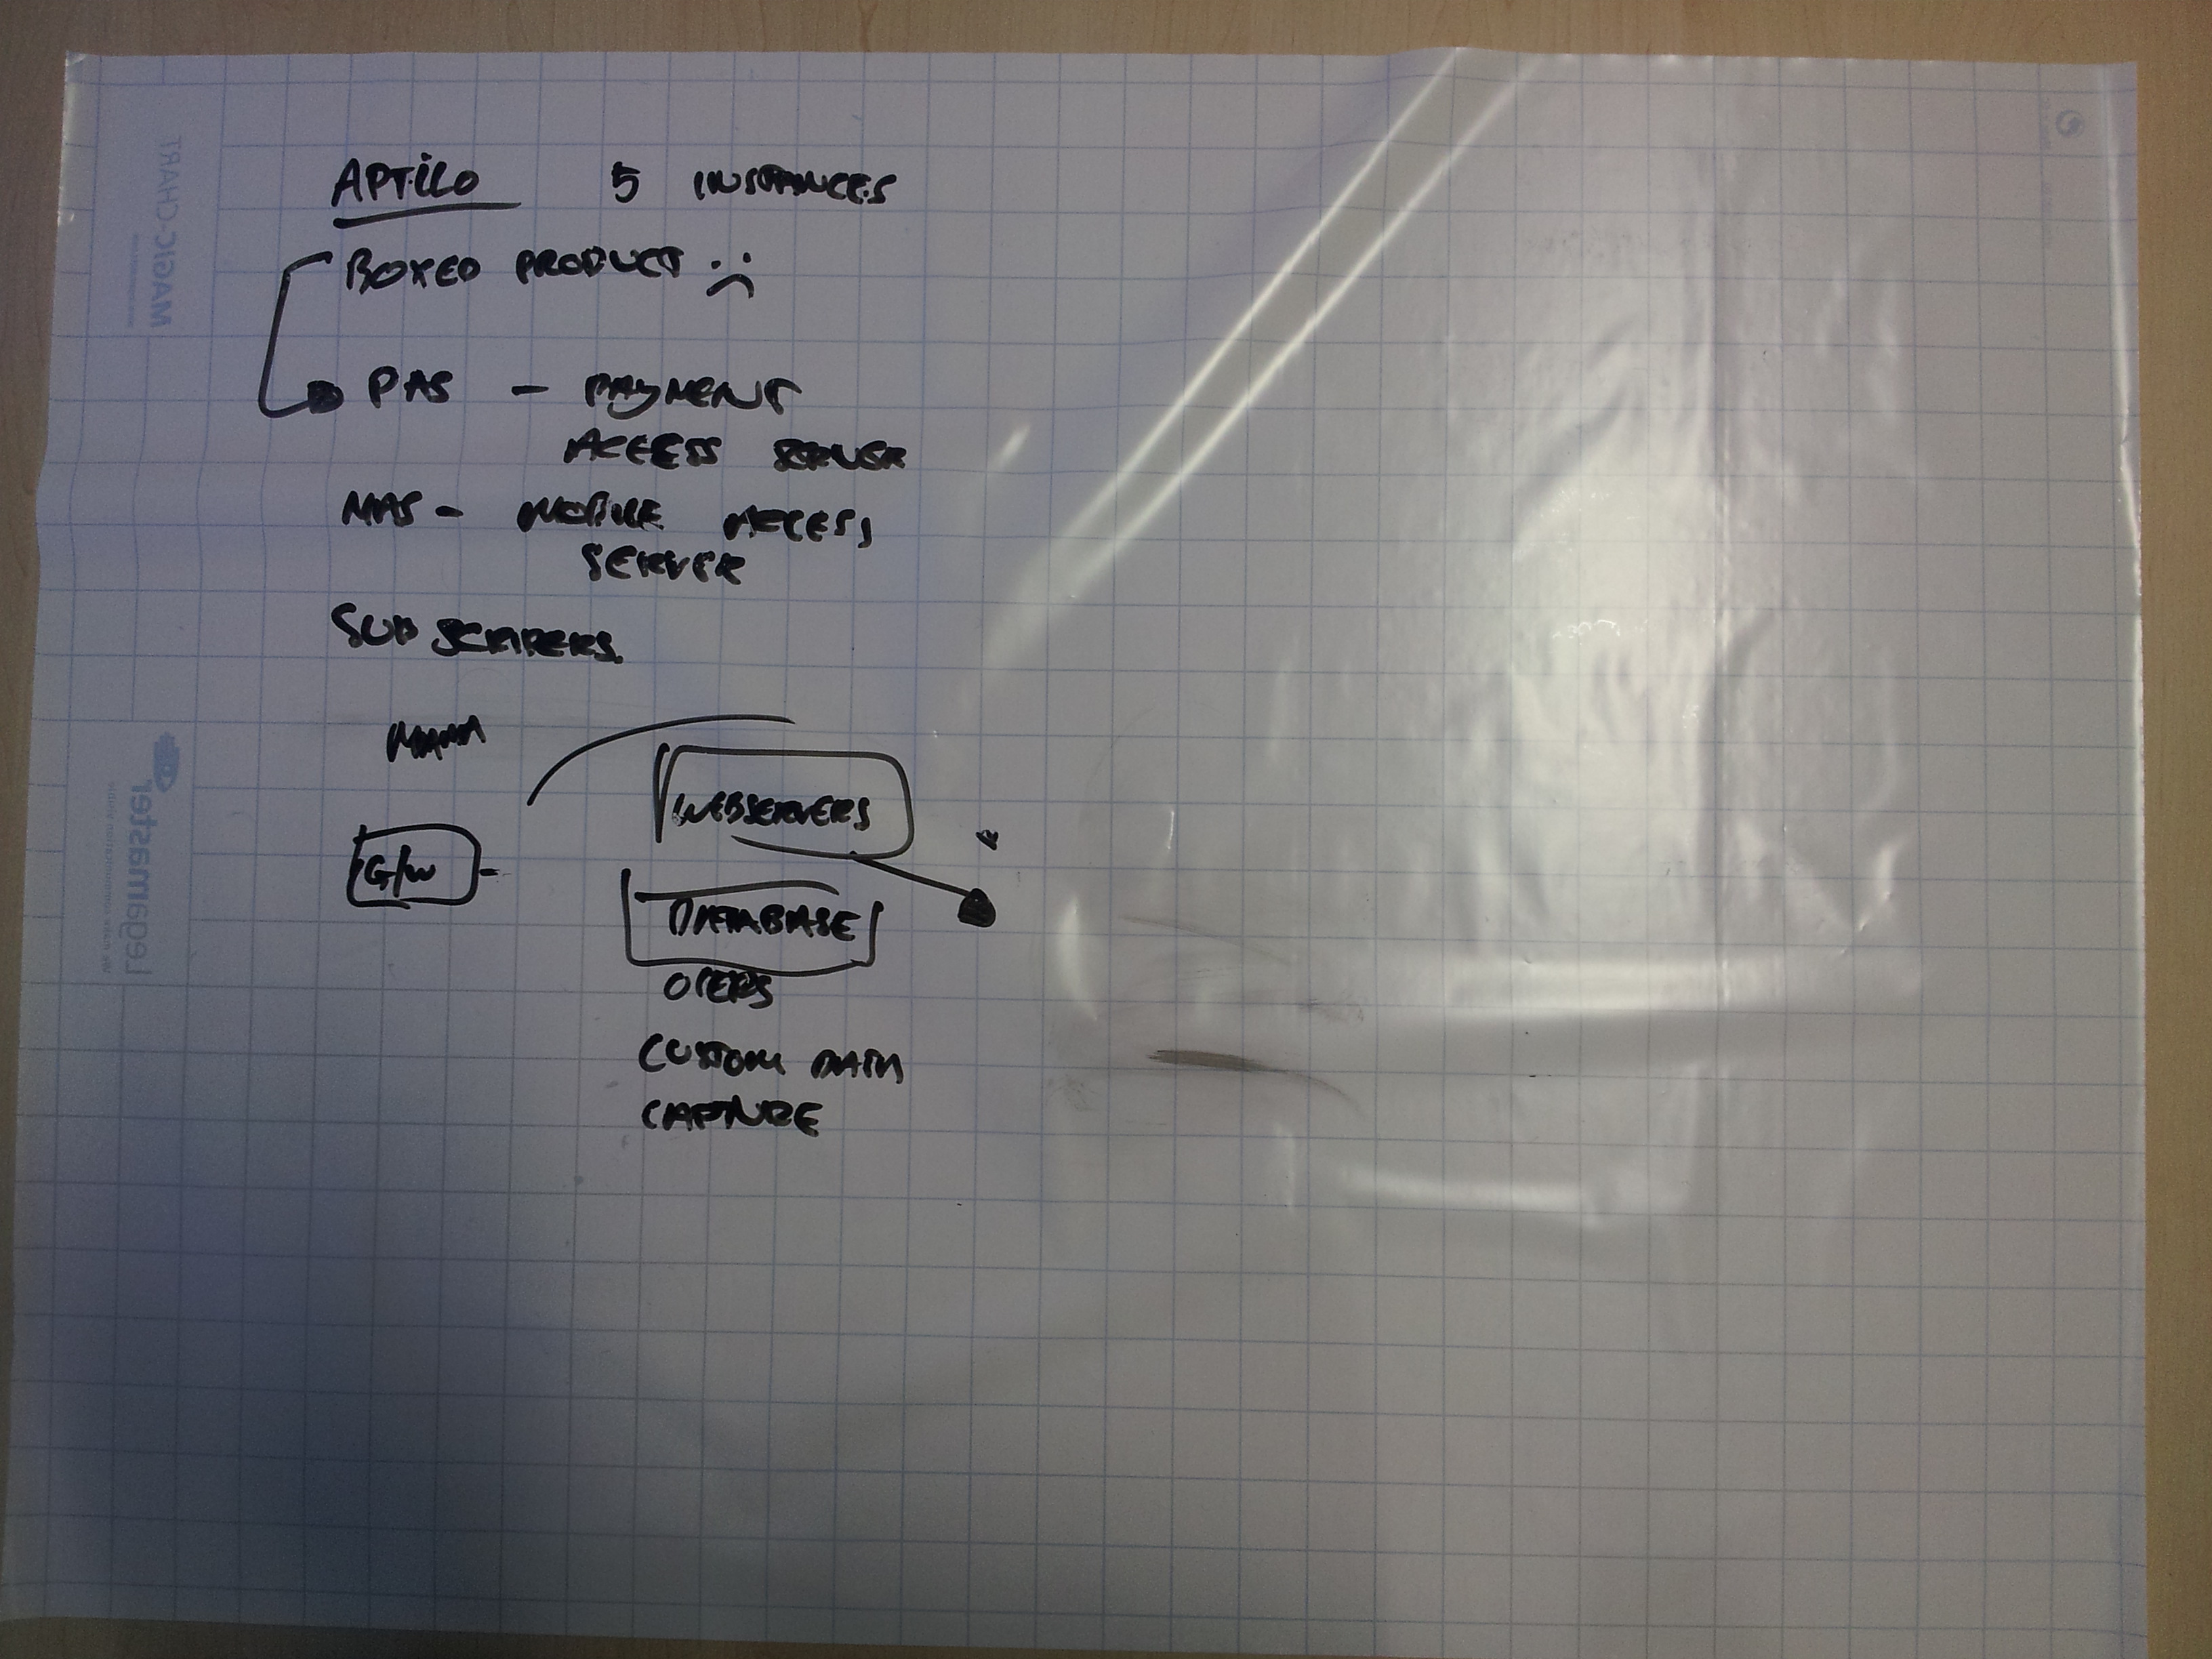 APTILO 5 INSTANCES
BOXED PRODUCT :(
PAS - PAYMENT
ACCESS SERVER
MAS - MOBILE ACCESS
SERVER
SUBSCRIBERS.
WEBSERVERS
G/W -
DATABASE
CUSTOM DATA
CAPTURE
MAGIC-CHART
Legamaster